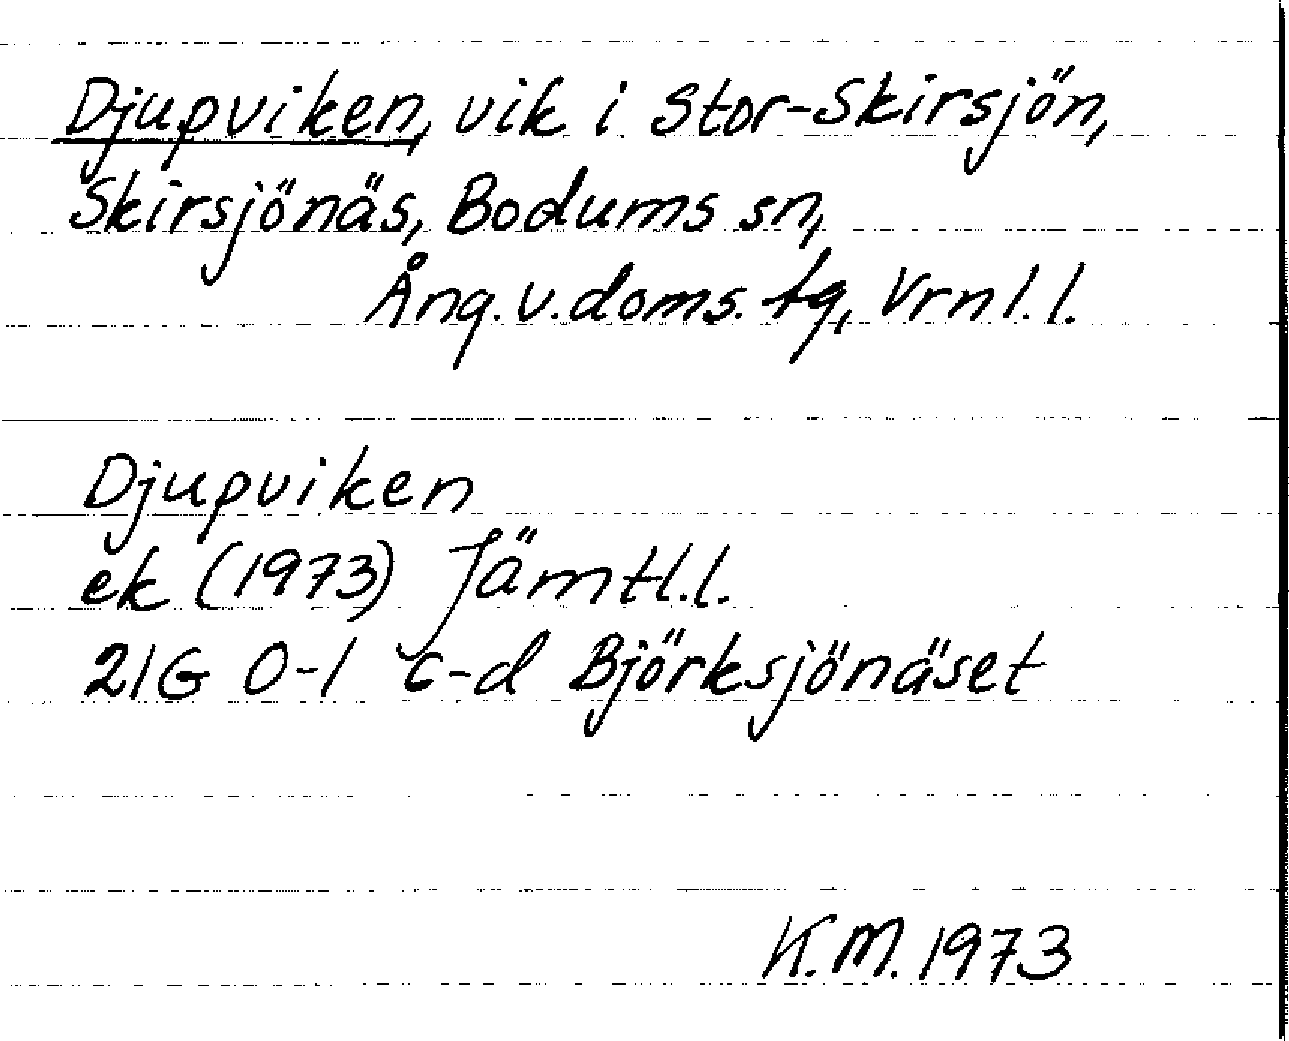 Djupviken, vik i Stor-Skirsjön,
Skirsjönäs, Bodums sn,
Ång.v.doms.tg, Vrnl.l.
Djupviken
ek (1973) Jämtl.l.
21G 0-1 c-d Björksjönäset
K.M. 1973